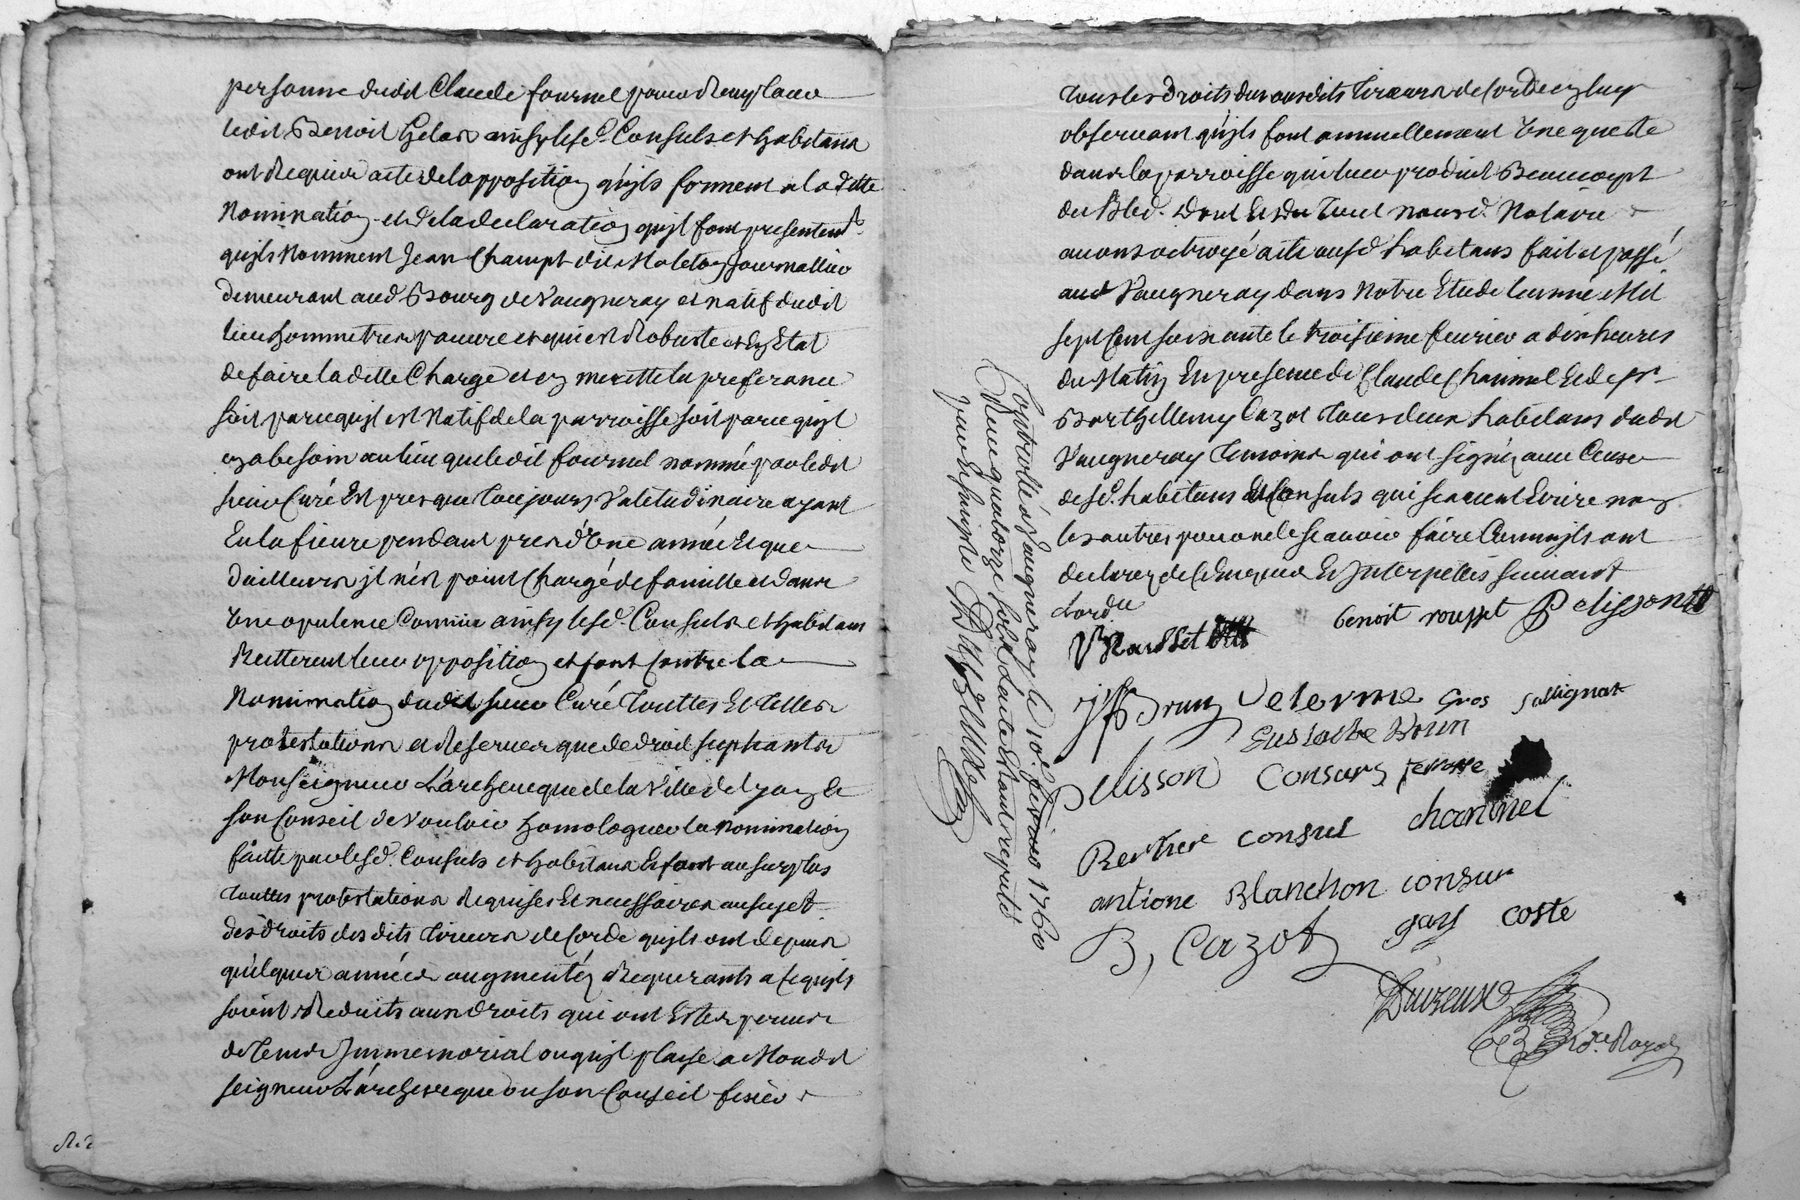 personne dudit Claude fournel pour Remplacer
ledit Benoit Gelas ainsy lesd. Consuls et habitans
ont Requier acte de lopposition qu'jls forment a la ditte
Nomination et de la declaration qujl font presentemt.
qujls Nomment Jean Champt dit Moleton Journallier
demeurant aud Bourg de Vaugneray et natif dudit
lieu homme tres pauvre et qui est Robuste et En Etat
de faire la ditte Charge et en meritte la preferance
soit parcequjl est Natif de la parroisse soit parce qujl
en a besoin au lieu que ledit fournel nommé par ledit
sieur Curé Est presque Toujours Valetudinaire ayant
Eu la fievre pendant pres d'Une année Et que
D'ailleurs jl n'est point Chargé de famille et dans
Une opulence Connüe ainsy lesd. Consuls et habitans
Reitterent leur opposition et font Contre la
Nomination dudit sieur Curé Touttes Et Telles
protestations et Reserves que de droit supliants
Monseigneur L'archeveque de la Ville de Lyon Et
son Conseil de Vouloir homologuer la Nomination
faitte par lesd. Consuls et habitans Et font au surplus
Touttes protestations Requises Et necessaires au sujet
des droits desdits Tireurs de Corde qujls ont depuis
quelques années augmentés Requerants a ce qujls
soient Reduits aux droits qui ont Estes perçus
de Temps Jmmemorial ou qu'jl plaise a Mondit
seigneur L'archeveque ou son Conseil fixer
Tous les droits dus ausdits Tireurs de Corde en luy
observant qu'jls font annuellement Une queste
dans la parroisse qui leur produit Beaucoupt
du Bled. Dont Et Du Tout nousd. Notaire
avons octroyé acte ausd habitans fait et passé
aud Vaugneray dans Notre Etude Lannée Mil
sept Cent soixante le troisieme fevrier a dix heures
du Matin En presence de Claude Chaninel Et de sr
Barthellemy Cazot Tous deux habitans dudit
Vaugneray Temoins qui ont signéz avec Ceux
desd. habitans Et Consuls qui scavent Ecrire non
les autres pour ne le scavoir faire Comm'jls ont
declarez de Ce Enquis Et Jnterpellés suivant
Lordce
benoit rousset Pelisson
JB Brun Delerme Gros sallignat
Eustache Brun
Pelisson Consurs
Berthet consul chaninel
antione Blanchon consur
B, Cazot gay coste
Nore. Royal
Controllé a Vaugneray le 10e. fevrier 1760
Receu quatorze sols Lacte Etant reputé